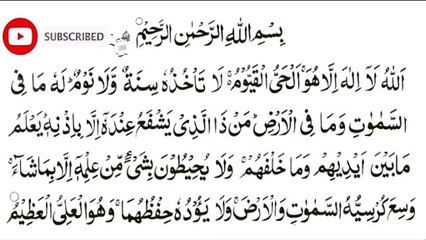 SUBSCRIBED
بِسْمِ اللهِ الرَّحْمٰنِ الرَّحِيْمِ
اَللهُ لَا اِلٰهَ اِلَّا هُوَ ۚ اَلْحَىُّ الْقَيُّوْمُ ۚ لَا تَاْخُذُهٗ سِنَةٌ وَّلَا نَوْمٌ ؕ لَهٗ مَا فِى
السَّمٰوٰتِ وَمَا فِى الْاَرْضِ ؕ مَنْ ذَا الَّذِىْ يَشْفَعُ عِنْدَهٗۤ اِلَّا بِاِذْنِهٖ ؕ يَعْلَمُ
مَا بَيْنَ اَيْدِيْهِمْ وَمَا خَلْفَهُمْ ۚ وَلَا يُحِيْطُوْنَ بِشَىْءٍ مِّنْ عِلْمِهٖۤ اِلَّا بِمَا شَآءَ ۚ
وَسِعَ كُرْسِيُّهُ السَّمٰوٰتِ وَالْاَرْضَ ۚ وَلَا يَئُوْدُهٗ حِفْظُهُمَا ۚ وَهُوَ الْعَلِىُّ الْعَظِيْمُ